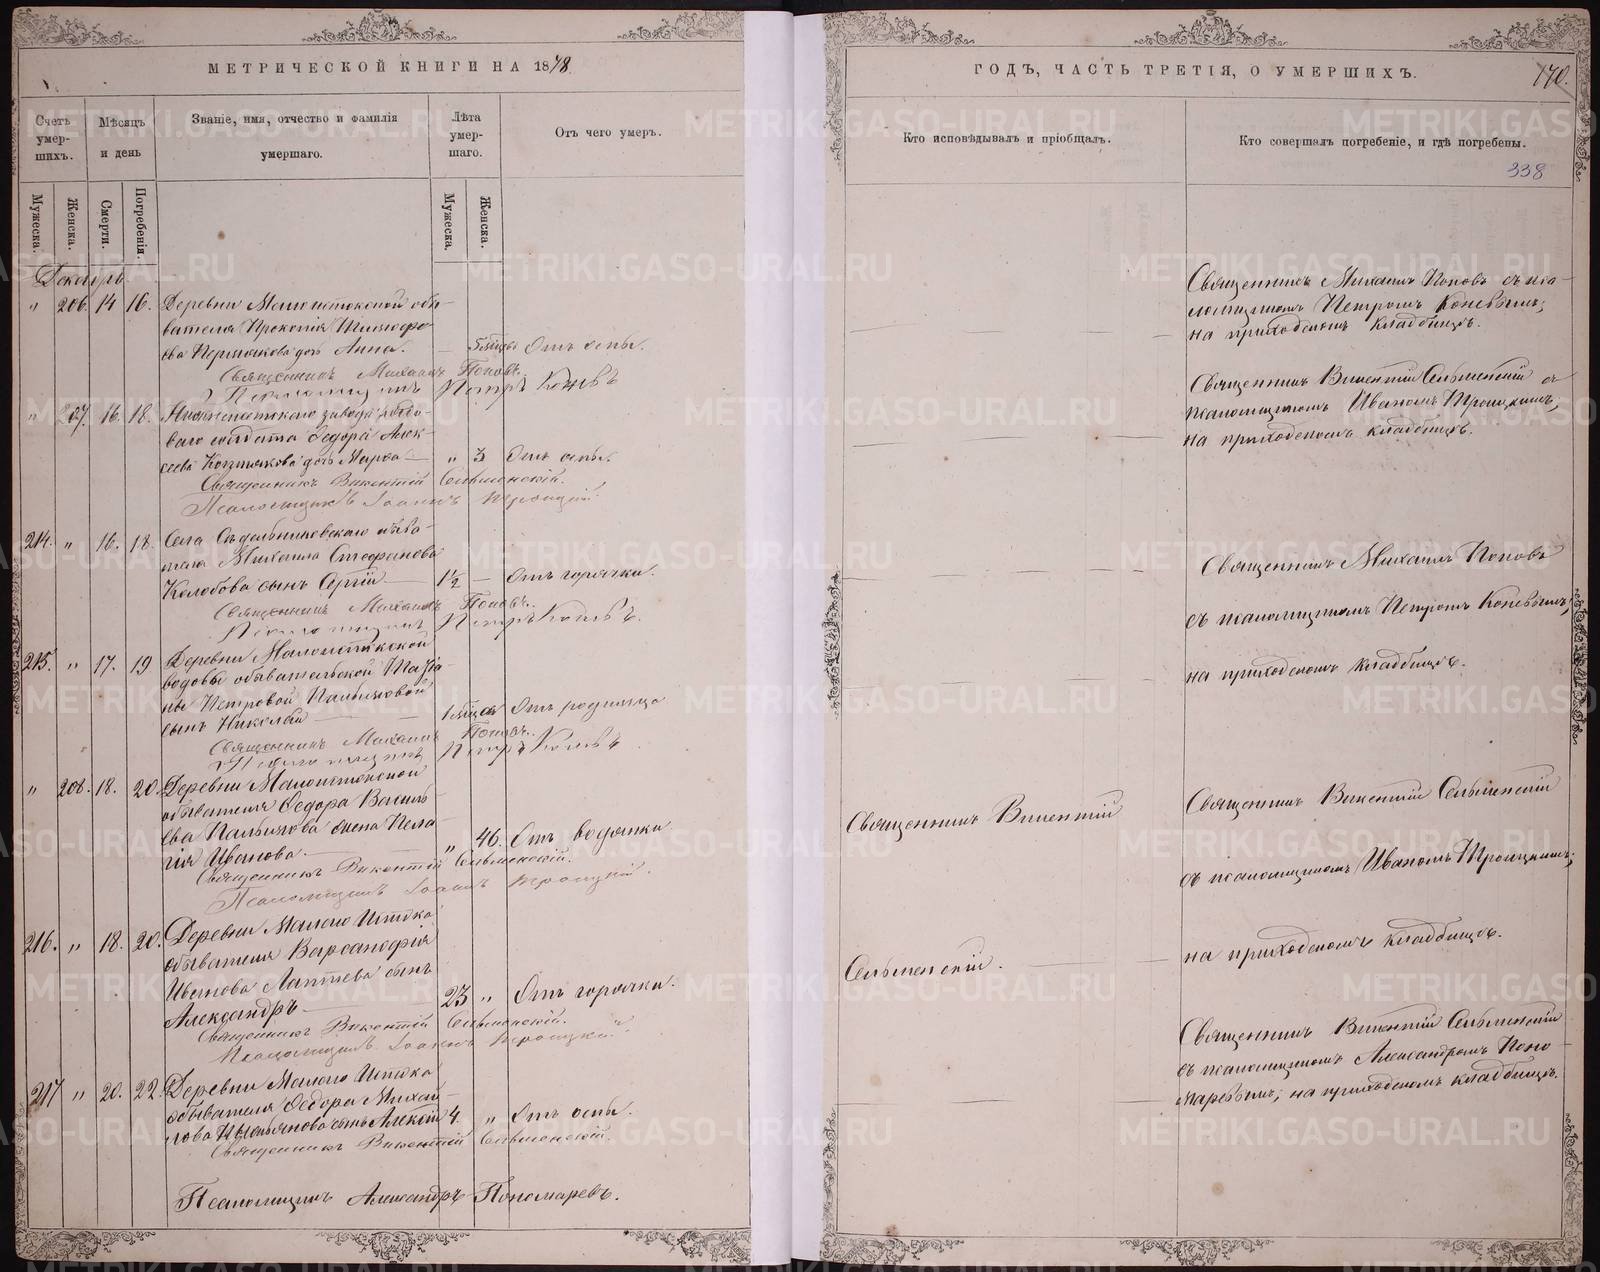 МЕТРИЧЕСКОЙ КНИГИ НА 1878
Счетъ умер-шихъ.
Мѣсяцъ и день
Званіе, имя, отчество и фамилія умершаго.
Лѣта умер-шаго.
Отъ чего умеръ.
Мужеска.
Женска.
Смерти.
Погребенія.
Мужеска.
Женска.
Декабрь
" 206. 14 16. Деревни Малоистокской обы-
вателя Прокопія
дочь Анна. Отъ оспы.
Священникъ Михаилъ Поповъ.
Псаломщикъ Петръ Коневъ
" 207. 16. 18. Нижнеисетскаго завода
солдата Ѳедора Алек-
сеева дочь Марѳа " 3 Отъ оспы.
Священникъ Викентій Сельменскій.
Псаломщикъ Іоаннъ Троицкій.
214. " 16. 18. Села Сѣдельниковскаго обыва-
теля Михаила Стефанова
Колобова сынъ Сергій 1½ — Отъ горячки.
Священникъ Михаилъ Поповъ.
Псаломщикъ Петръ Коневъ.
215. " 17. 19 Деревни Малоистокской
вдовы обывательской Татья-
ны Петровой
сынъ Николай Отъ родимца
Священникъ Михаилъ Поповъ.
Псаломщикъ Петръ Коневъ
" 208. 18. 20. Деревни Малоистокской
обывателя Ѳедора Василь-
ева жена Пела-
гія Иванова " 46. Отъ водянки
Священникъ Викентій Сельменскій.
Псаломщикъ Іоаннъ Троицкій.
216. " 18. 20. Деревни Малого Истока
обывателя Варсанофія
Иванова Лаптева сынъ
Александръ 23 " Отъ горячки.
Священникъ Викентій Сельменскій.
Псаломщикъ Іоаннъ Троицкій.
217 " 20. 22. Деревни Малого Истока
обывателя Ѳедора Михай-
лова сынъ Алексѣй 4. " Отъ оспы.
Священникъ Викентій Сельменскій.
Псаломщикъ Александръ Пономаревъ.
ГОДЪ, ЧАСТЬ ТРЕТІЯ, О УМЕРШИХЪ.
170.
Кто исповѣдывалъ и пріобщалъ.
Кто совершалъ погребеніе, и гдѣ погребены.
338
Священникъ Михаилъ Поповъ съ пса-
ломщикомъ Петромъ Коневымъ;
на приходскомъ кладбищѣ.
Священникъ Викентій Сельменскій съ
псаломщикомъ Иваномъ Троицкимъ;
на приходскомъ кладбищѣ.
Священникъ Михаилъ Поповъ
съ псаломщикомъ Петромъ Коневымъ;
на приходскомъ кладбищѣ.
Священникъ Викентій
Сельменскій.
Священникъ Викентій Сельменскій
съ псаломщикомъ Иваномъ Троицкимъ;
на приходскомъ кладбищѣ.
Священникъ Викентій Сельменскій
съ псаломщикомъ Александромъ Поно-
маревымъ; на приходскомъ кладбищѣ.
METRIKI.GASO-URAL.RU